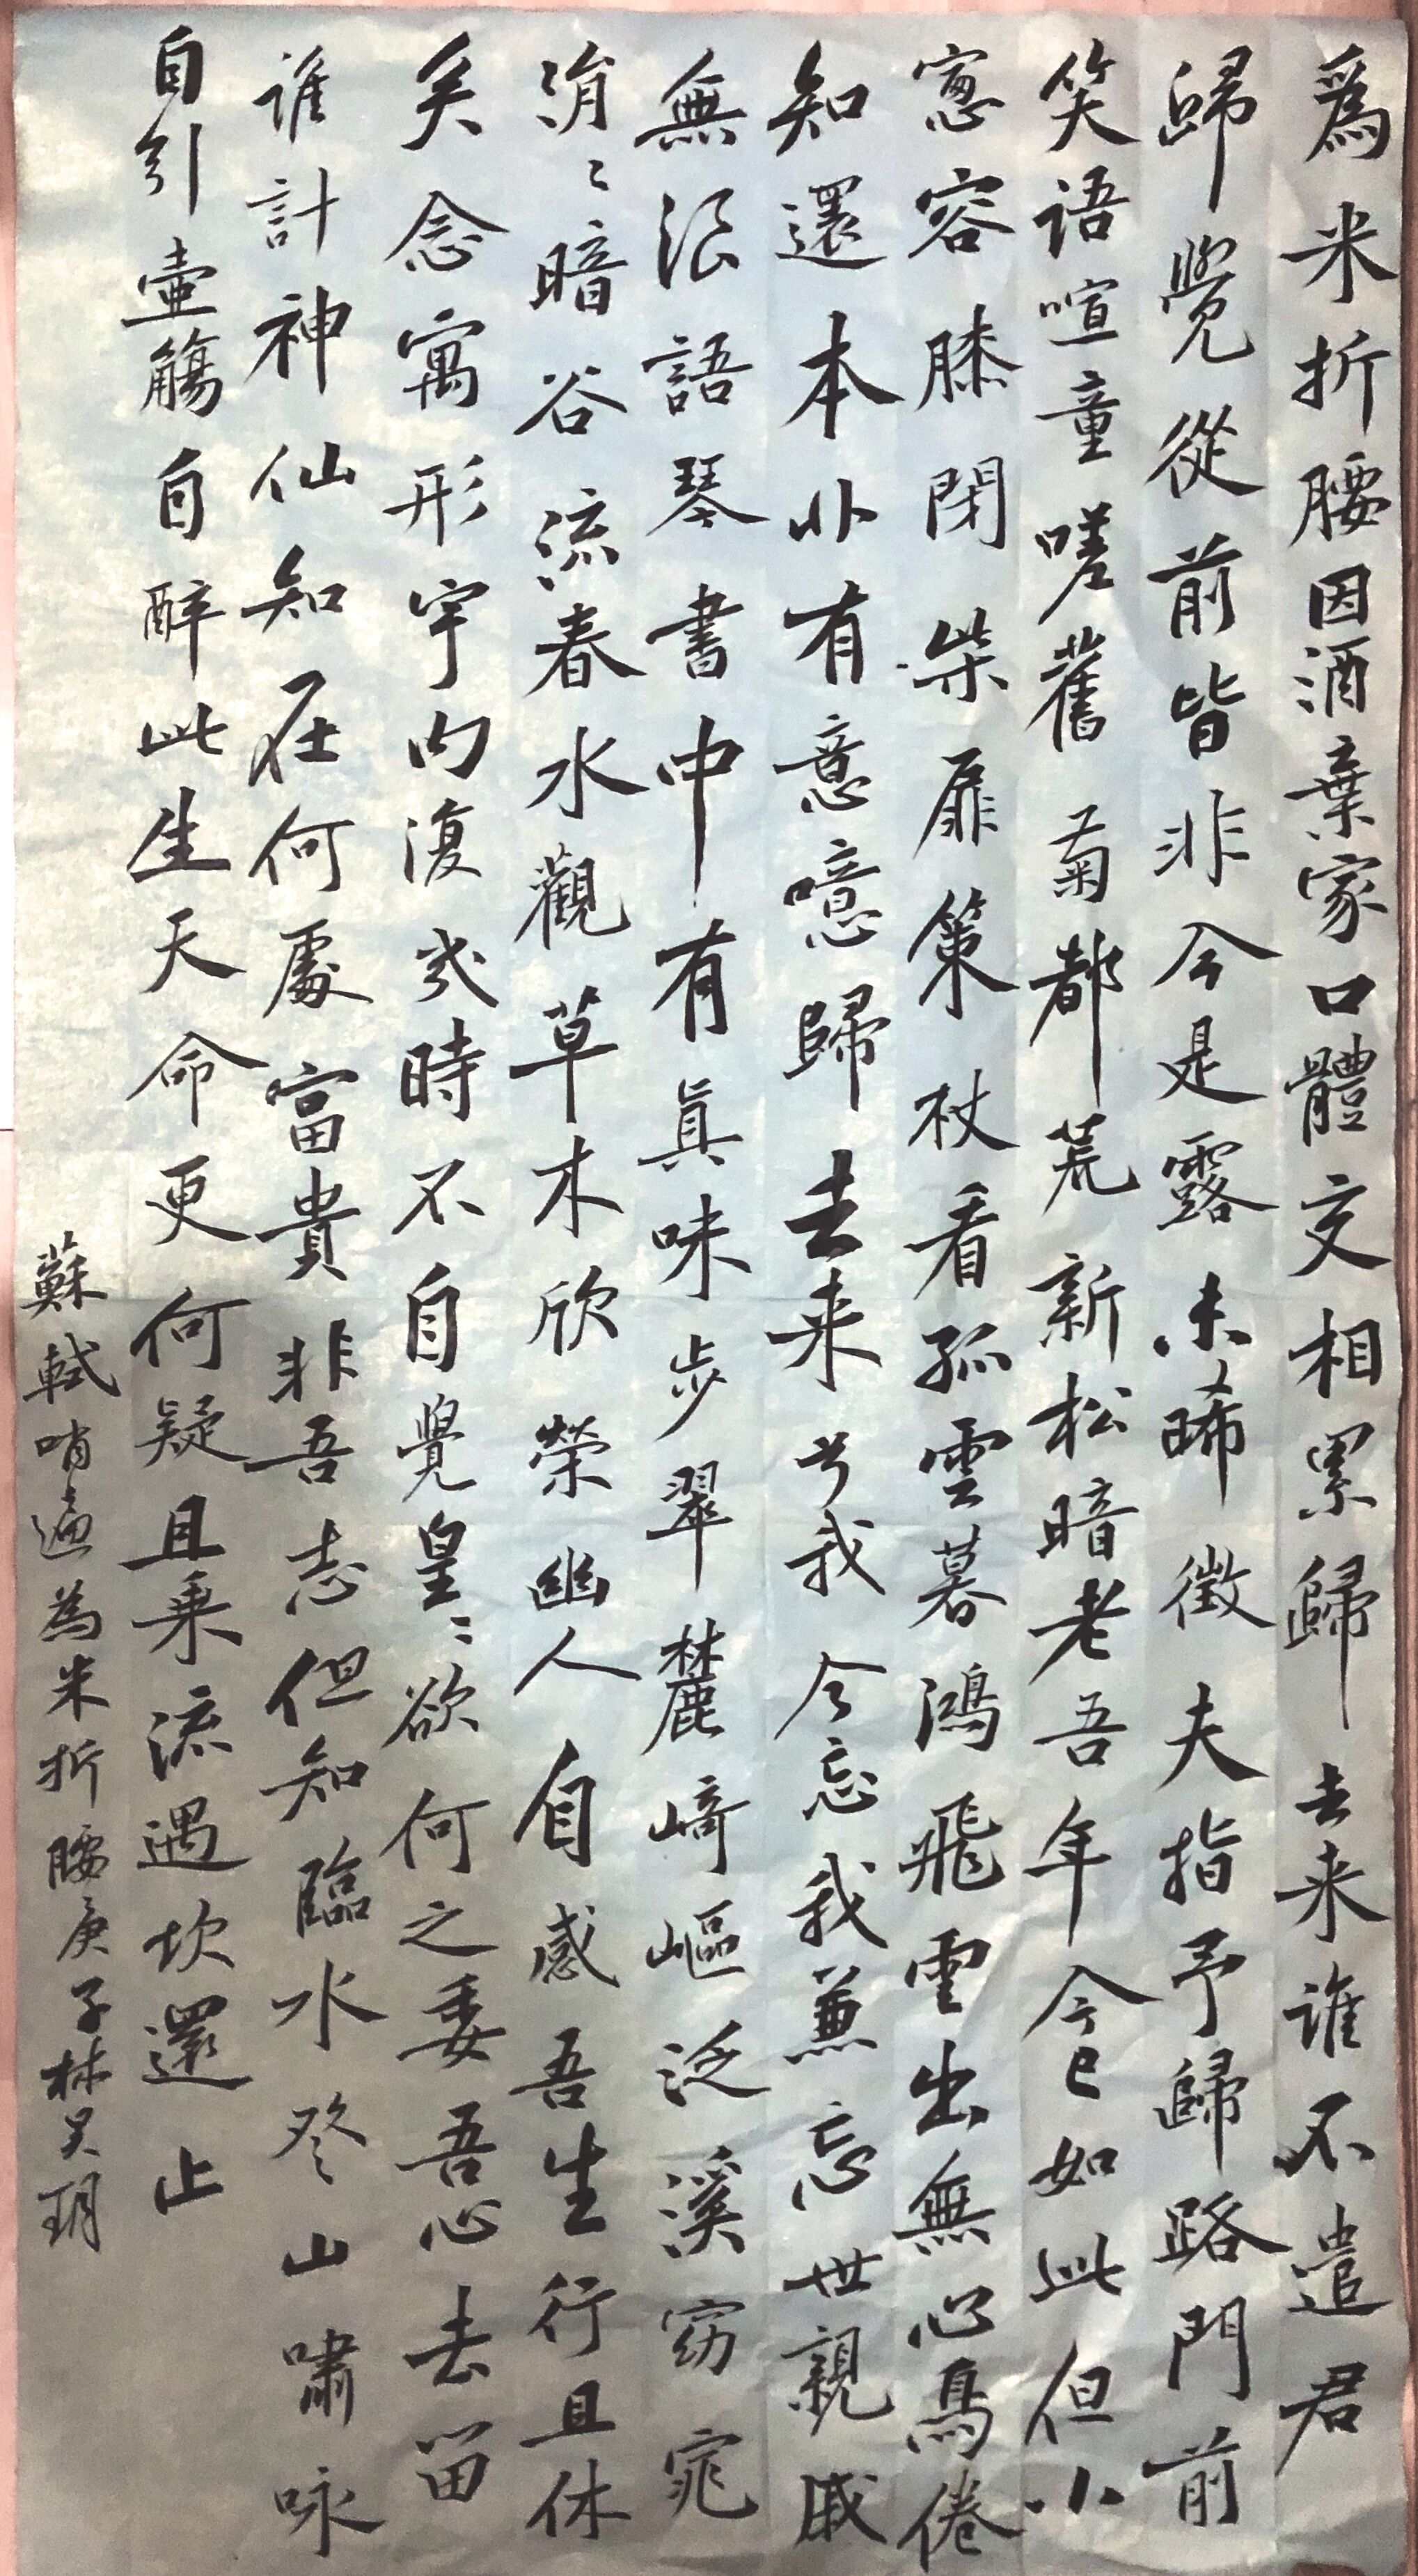 為米折腰因酒棄家口體交相累歸去来誰不遣君
歸覺從前皆非今是露未晞徵夫指予歸路門前
笑語喧童嗟舊菊都荒新松暗老吾年今已如此但小
窻容膝閉柴扉策杖看孤雲暮鴻飛雲出無心鳥倦
知還本非有意噫歸去来兮我今忘我兼忘世親戚
無浪語琴書中有真味步翠麓崎嶇泛溪窈窕
涓〻暗谷流春水觀草木欣榮幽人自感吾生行且休
矣念寓形宇内復幾時不自覺皇〻欲何之委吾心去留
誰計神仙知在何處富貴非吾志但知臨水登山嘯咏
自引壺觴自醉此生天命更何疑且乗流遇坎還止
蘇軾哨遍為米折腰庚子林昊玥